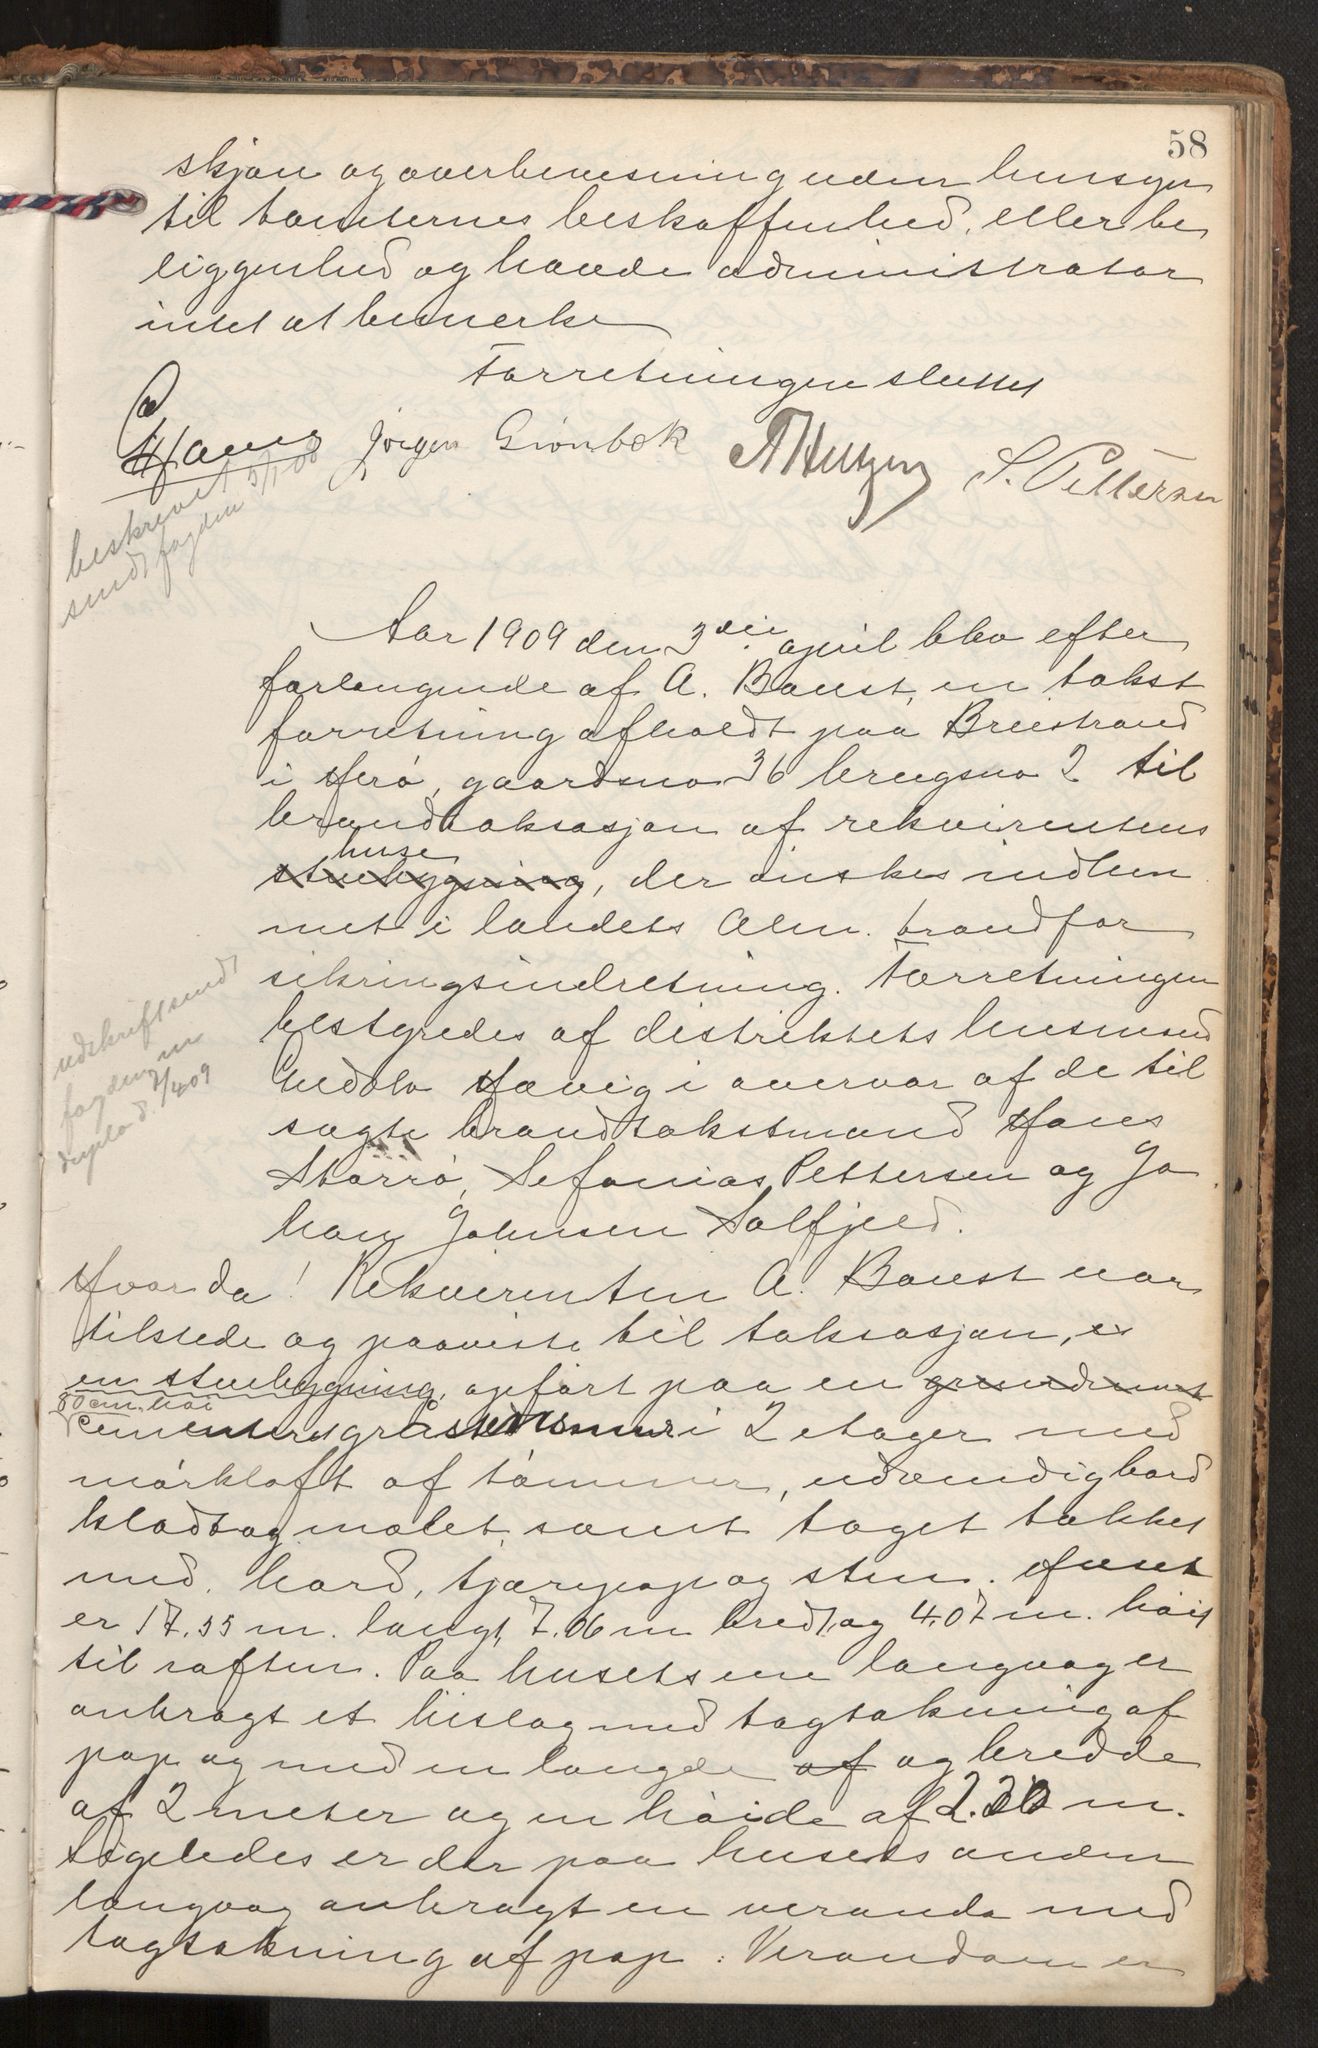 58
skjøn og overbevisning uden hensyn
til tomternes beskaffenhed, eller be
liggenhed og havde administrator
intet at bemerke
Forretningen sluttet
Jørgen Grønbæk
S. Pettersen
beskrevet
sendt fogden 5/1 08
Aar 1909 den 3die april blev efter
forlangende af A. Baust, en takst
forretning afholdt paa Breistrand
i Herø, gaardsno 36 brugsno 2 til
brandtaksasjon af rekvirentens
huse
stuebygning, der ønskes indlem
met i landets Alm. brandfor
sikringsindretning. Forretningen
bestyredes af distriktets lensmand
Hævig i overvær af de til
sagte brandtakstmænd Hans
Storrø, Sefanias Pettersen og Jo
han Johnsen Solfjeld.
udskrift sendt
fogden
7/4 09
Hvorda! Rekvirenten A. Baust var
tilstede og paaviste til taksasjon, e
en stuebygning, opført paa en grundmur
80 cm. høi
cementeret gråstensmur i 2 etager med
mørkloft af tømmer, udvendig bord
klædt og malet, samt taget tækket
med bord, tjærepap og sten. Huset
er 17.55 m. langt, 7.06 m bredt, og 4.07 m. høit
til raften. Paa husets ene langvæg er
anbragt et bislag med tagtækning af
pap og med en længde af og bredde
af 2 meter og en høide af 2.20 m.
Ligeledes er der paa husets anden
langvæg anbragt en veranda med
tagtækning af pap. Verandaen er